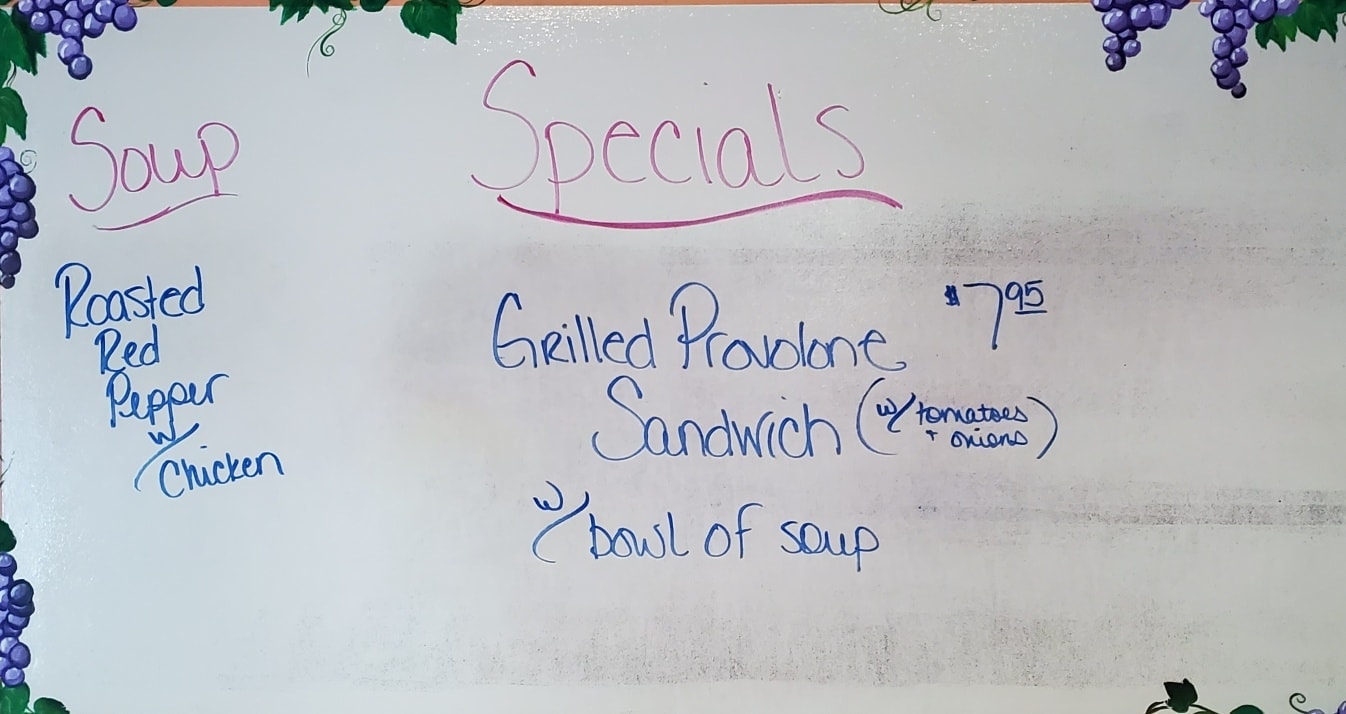 Soup
Roasted
Red
Pepper
w/
Chicken
Specials
Grilled Provolone $7.95
Sandwich (w/ tomatoes
+ onions)
w/ bowl of soup